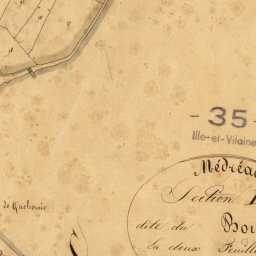 - 35 -
Ille-et-Vilaine
Médréac
Section
dite du Bou
en deux Feuill
de